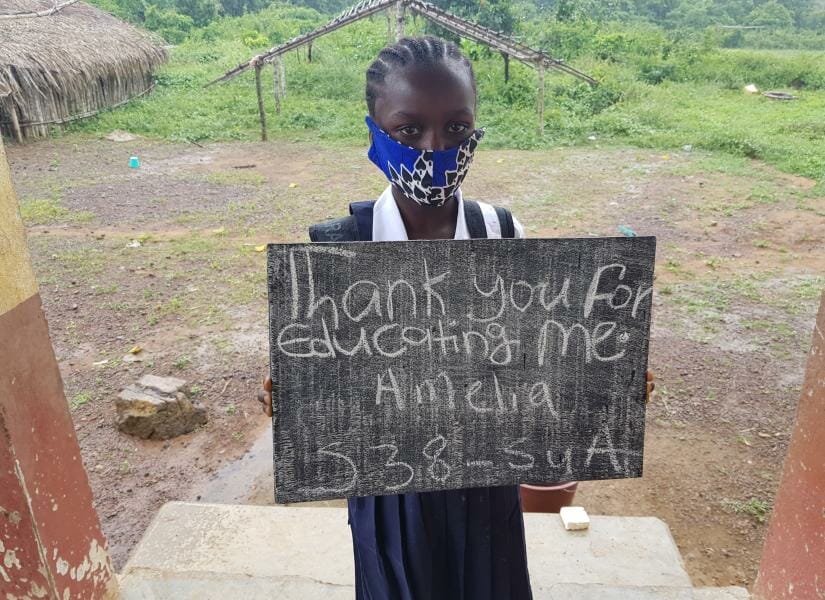 Thank you for
Educating me.
Amelia
538-SyA